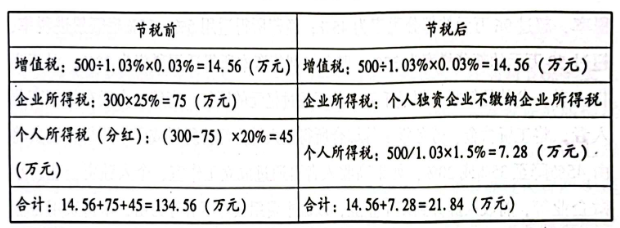 节税前
节税后
增值税：500÷1.03%×0.03%=14.56（万元）
增值税：500÷1.03%×0.03%=14.56（万元）
企业所得税：300×25%=75（万元）
企业所得税：个人独资企业不缴纳企业所得税
个人所得税（分红）：（300-75）×20%=45
（万元）
个人所得税：500/1.03×1.5%=7.28（万元）
合计：14.56+75+45=134.56（万元）
合计：14.56+7.28=21.84（万元）